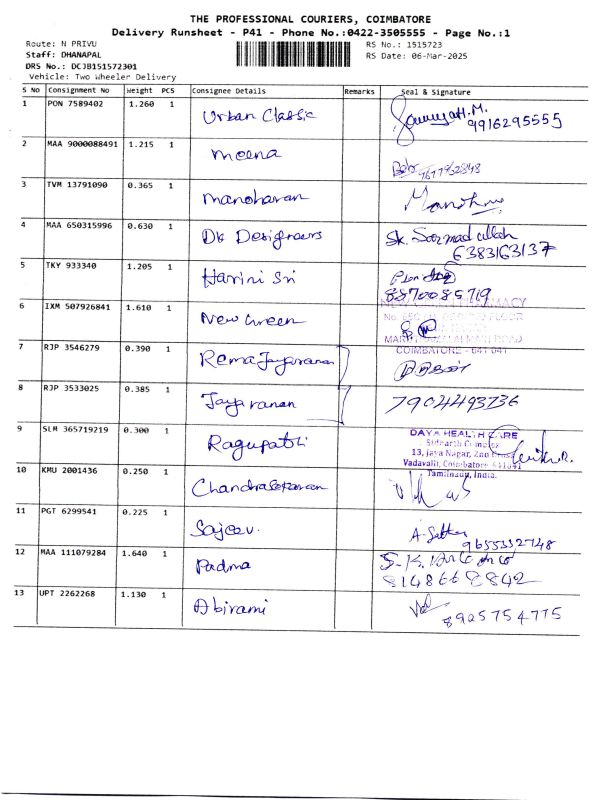 THE PROFESSIONAL COURIERS, COIMBATORE
Delivery Runsheet - P41 - Phone No.:0422-3505555 - Page No.:1
Route: N PRIVU RS No.: 1515723
Staff: DHANAPAL RS Date: 06-Mar-2025
DRS No.: DCJB151572301
Vehicle: Two Wheeler Delivery
S No Consignment No Weight PCS Consignee Details Remarks Seal & Signature
1 PON 7589402 1.260 1 Urban Classic
9916295555
2 MAA 9000088491 1.215 1 meena
3 TVM 13791090 0.365 1 manoharan
4 MAA 650315996 0.630 1 Dk Designers
6383163137
5 TKY 933340 1.205 1 Harini Sri
8870085719
6 IXM 507926841 1.610 1 New Green
COIMBATORE - 641 041
7 RJP 3546279 0.390 1 Rema Jayaranan
8 RJP 3533025 0.385 1 Jayaranan 7904493736
9 SLM 365719219 0.300 1 Ragupathi DAYA HEALTH CARE
Sidharth Complex
13, Jaya Nagar, 2nd Cross
Vadavalli, Coimbatore 641041
Tamilnadu, India.
10 KMU 2001436 0.250 1 Chandrasekaran
11 PGT 6299541 0.225 1 Sajeev.
9655332748
12 MAA 111079284 1.640 1 Padma
8148668842
13 UPT 2262268 1.130 1 Abirami
8925754775